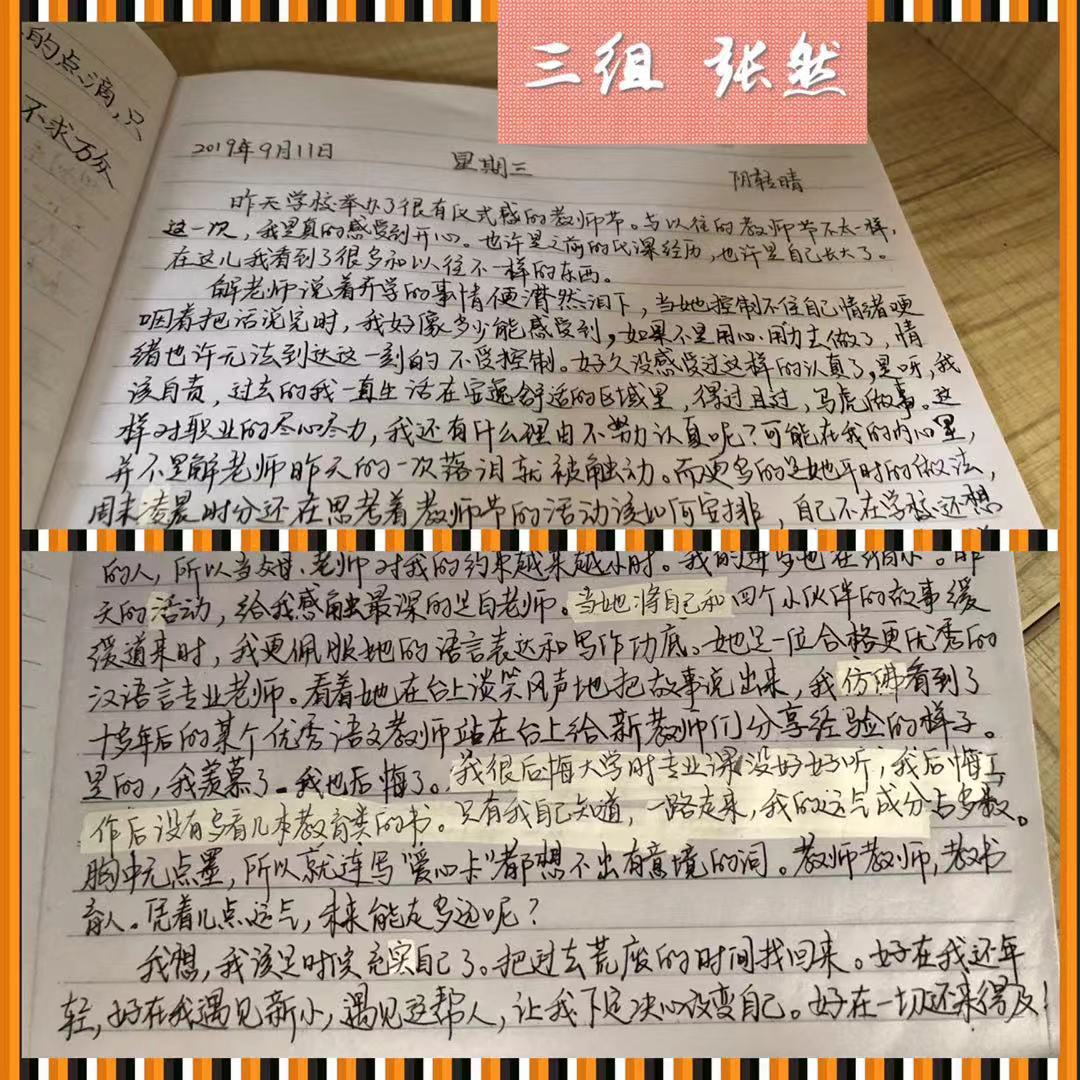 的点滴,只
不求万众
三组 张然
2019年9月11日 星期三 阴转晴
昨天学校举办了很有仪式感的教师节。与以往的教师节不太一样,
这一次,我是真的感受到开心。也许是之前的代课经历,也许是自己长大了。
在这儿我看到了很多和以往不一样的东西。
解老师说着开学的事情便潸然泪下,当她控制不住自己情绪哽
咽着把话说完时,我好像多少能感受到,如果不是用心用力去做了,情
绪也许无法到达这一刻的不受控制。好久没感受过这样的认真了,是听,我
该自责,过去的我一直生活在安逸舒适的区域里,得过且过,马虎做事。这
样对职业的尽心尽力,我还有什么理由不努力认真呢?可能在我的内心里,
并不是解老师昨天的一次落泪就被触动。而更多的是她平时的做法,
周末凌晨时分还在思考着教师节的活动该如何安排,自己不在学校还想
的人,所以当父母、老师对我的约束越来越小时。我的进步也在缩小。昨
天的活动,给我感触最深的是白老师。当她将自己和四个小伙伴的故事缓
缓道来时,我更佩服她的语言表达和写作功底。她是一位合格更优秀的
汉语言专业老师。看着她在台上谈笑风声地把故事说出来,我仿佛看到了
十多年后的某个优秀语文教师站在台上给新教师们分享经验的样子。
是的,我羡慕了。我也后悔了。我很后悔大学时专业课没好好听,我后悔工
作后没有多看几本教育类的书。只有我自己知道,一路走来,我的运气成分占多数。
胸中无点墨,所以就连写“爱心卡”都想不出有意境的词。教师教师,教书
育人。凭着几点运气,未来能走多远呢?
我想,我该是时候充实自己了。把过去荒废的时间找回来。好在我还年
轻,好在我遇见新小,遇见这帮人,让我下定决心改变自己。好在一切还来得及!